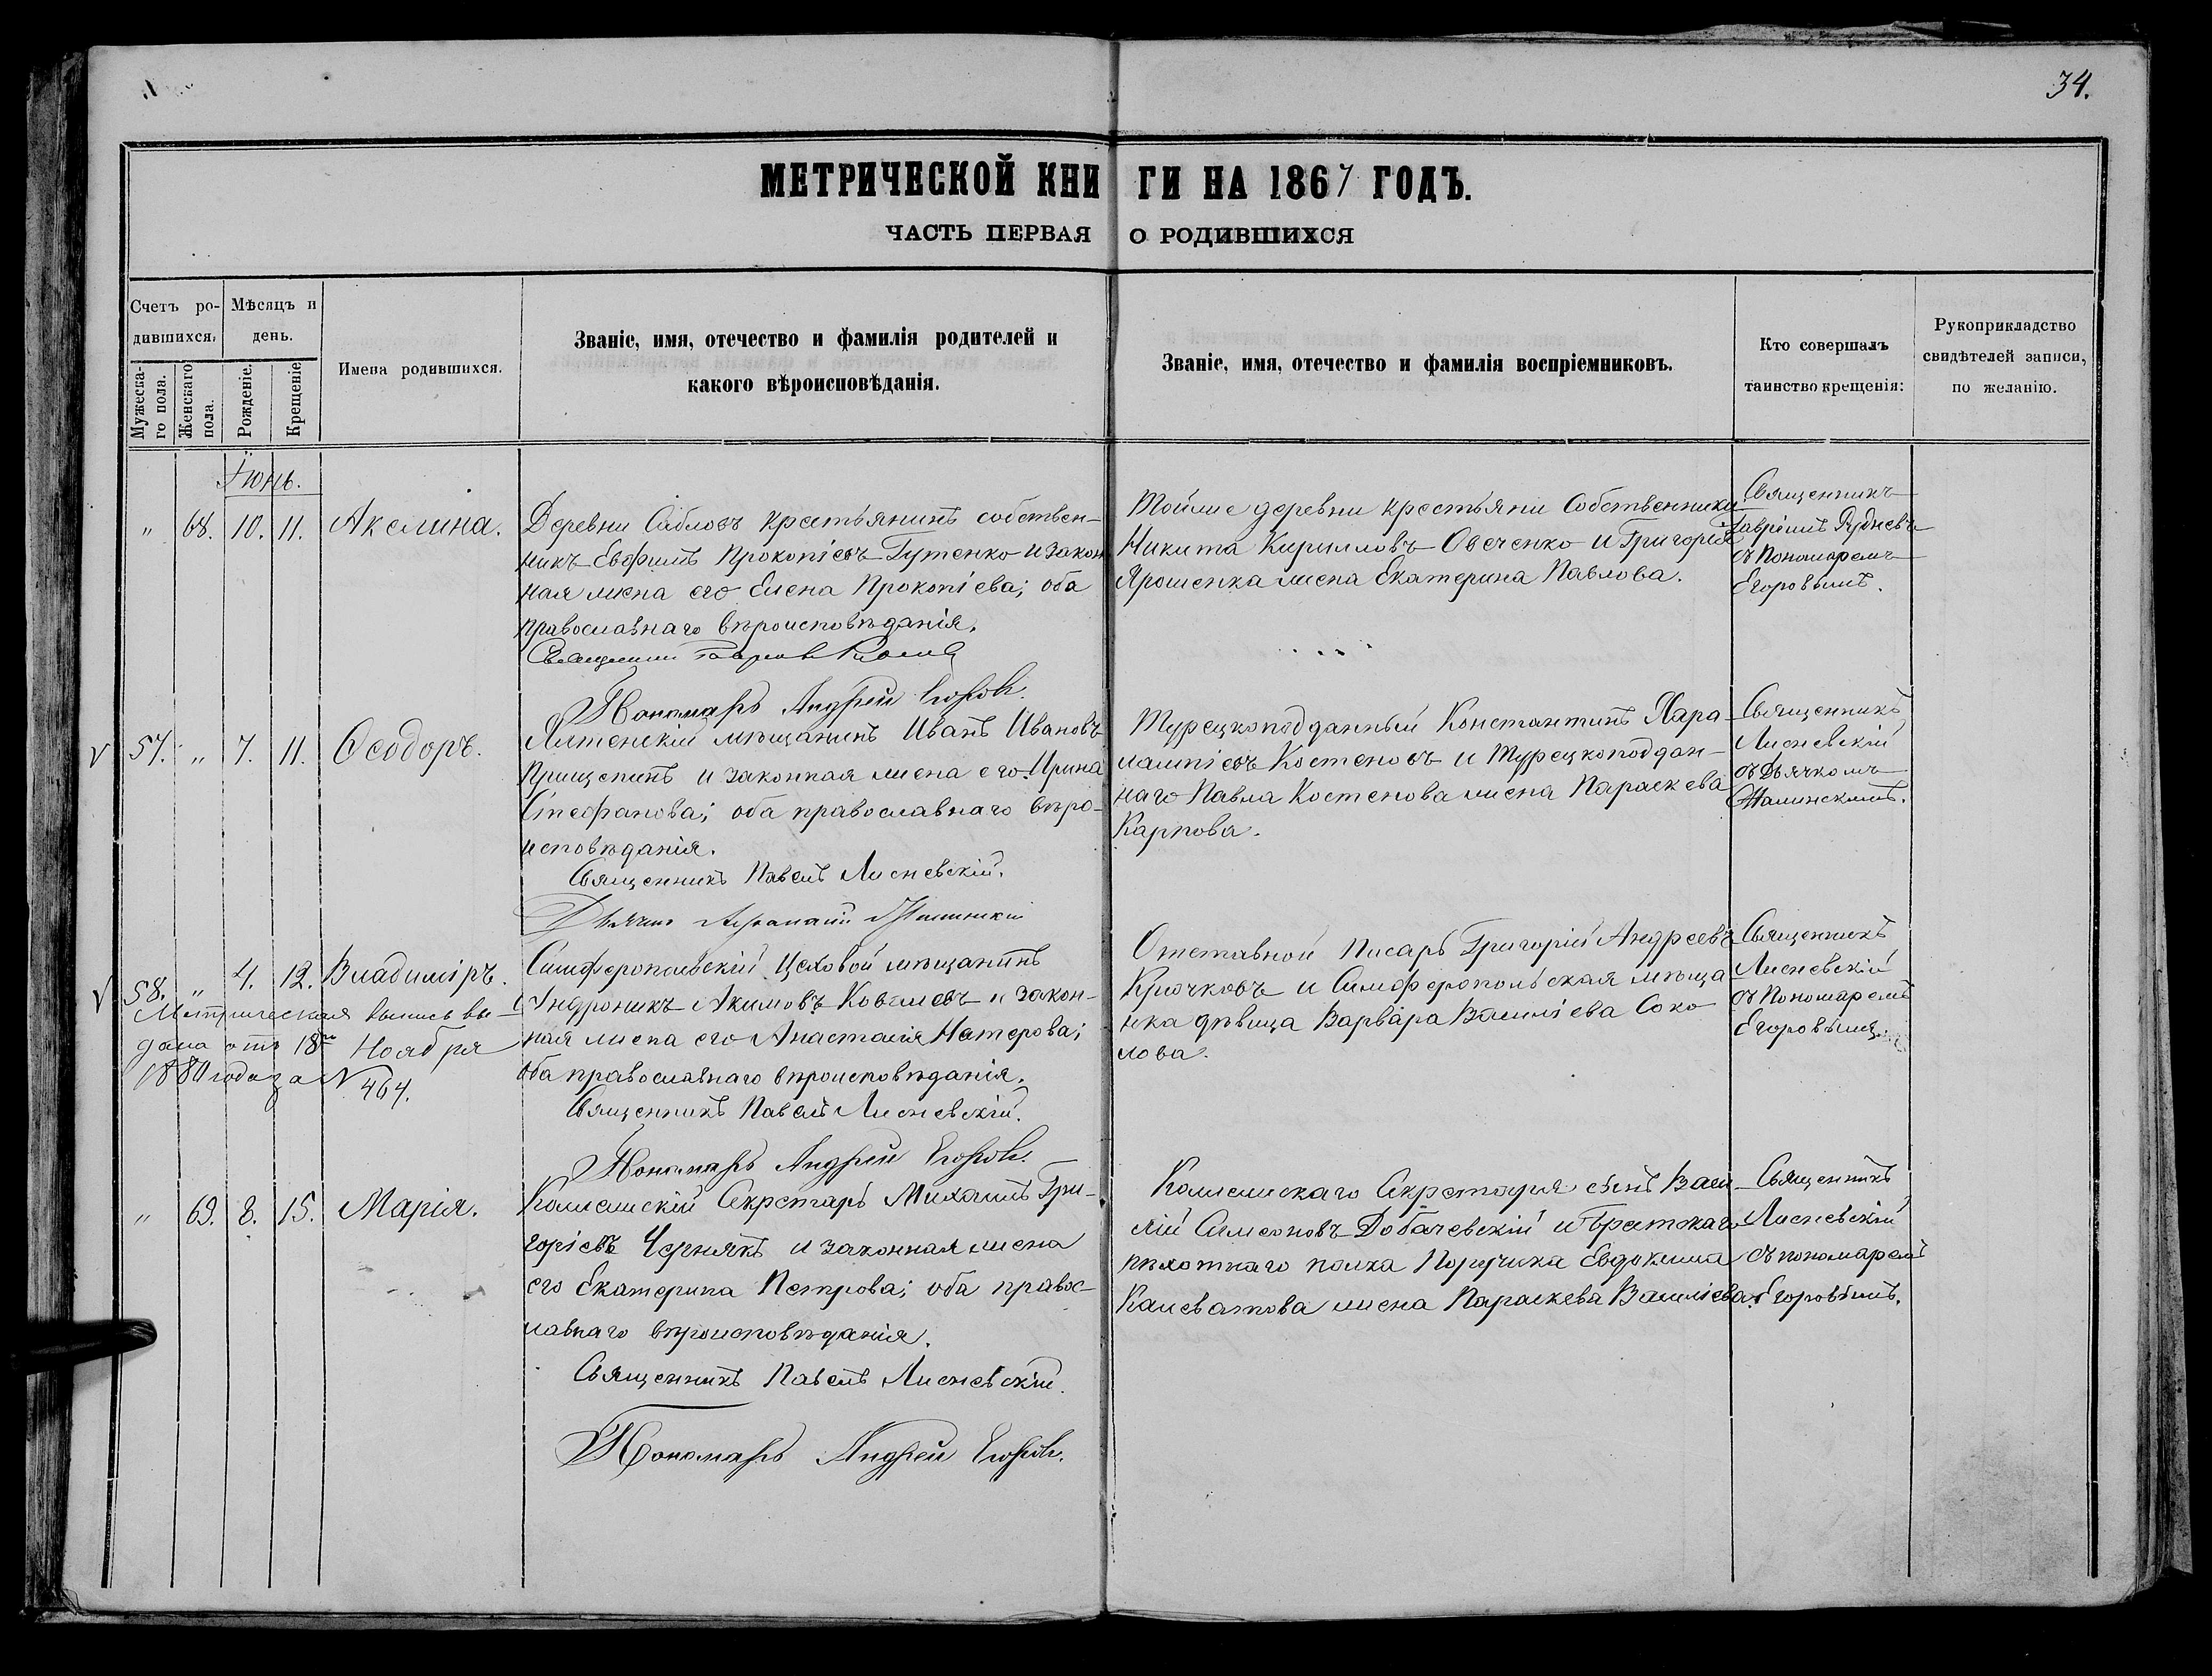 34.
МЕТРИЧЕСКОЙ КНИГИ НА 1867 ГОДЪ.
ЧАСТЬ ПЕРВАЯ О РОДИВШИХСЯ
Счетъ ро-
дившихся.
Мужеска-
го пола.
Женскаго
пола.
Мѣсяцъ и
день.
Рожденіе.
Крещеніе
Имена родившихся.
Званіе, имя, отечество и фамилія родителей и
какого вѣроисповѣданія.
Званіе, имя, отечество и фамилія воспріемниковъ.
Кто совершалъ
таинство крещенія:
Рукоприкладство
свидѣтелей записи,
по желанію.
Іюнь.
" 68. 10. 11. Акелина.
Деревни Сабловъ крестьянинъ собствен-
никъ Евфимъ Прокопіевъ Гутенко и закон
ная жена его Елена Прокопіева; оба
православнаго вѣроисповѣданія.
Священникъ
Пономарь Андрей Егоровъ.
Тойже деревни крестьяни Собственники
Никита Кирилловъ Овеченко и Григорія
Ярошенка жена Екатерина Павлова.
Священникъ
Гавріилъ Рудневъ
съ Пономаремъ
Егоровымъ.
57. " 7. 11. Ѳеодоръ.
Ялтенскій мѣщанинъ Иванъ Ивановъ
Прищепинъ и законная жена его Ирина
Стефанова; оба православнаго вѣро-
исповѣданія.
Священникъ Павелъ Лисневскій.
Дьячекъ
Турецкоподданный Константинъ Хара-
лампіевъ Костеновъ и Турецкоподдан-
наго Павла Костенова жена Параскева
Карпова.
Священникъ
Лисневскій
съ Дьячкомъ
58. " 4. 12. Владиміръ.
Метрическая выпись вы-
дана отъ 18го Ноября
1880 года за N 464.
Симферопольскій Цеховой мѣщанинъ
Андроникъ Акимовъ Ковалевъ и закон-
ная жена его Анастасія Нестерова;
оба православнаго вѣроисповѣданія.
Священникъ Павелъ Лисневскій.
Пономарь Андрей Егоровъ.
Отставной Писарь Григорій Андреевъ
Крючковъ и Симферопольская мѣща
нка дѣвица Варвара Василіева Соко
лова.
Священникъ
Лисневскій
съ Пономаремъ
Егоровымъ.
" 69. 8. 15. Марія.
Коллежскій Секретарь Михаилъ Гри-
горіевъ Чернякъ и законная жена
его Екатерина Петрова; оба правос-
лавнаго вѣроисповѣданія.
Священникъ Павелъ Лисневскій.
Пономарь Андрей Егоровъ.
Коллежскаго Секретаря сынъ Васи-
лій Симеоновъ Добачевскій и Брестскаго
пѣхотнаго полка Поручика Евдокима
жена Параскева Василіева.
Священникъ
Лисневскій
съ пономаремъ
Егоровымъ.